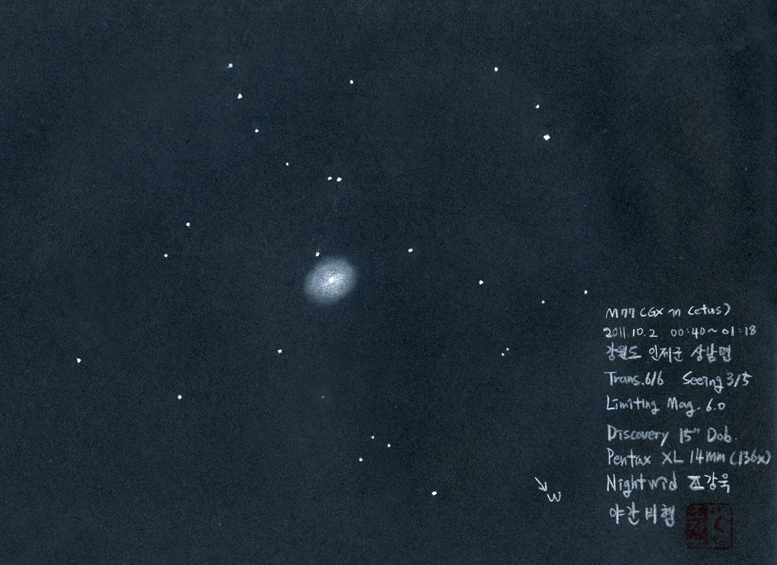 M77 (GX in Cetus)
2011.10.2 00:40~01:18
강원도 인제군 상남면
Trans. 6/6 Seeing 3/5
Limiting Mag. 6.0
Discovery 15" Dob.
Pentax XL 14mm (136x)
Nightwid 조강욱
야간비행
W